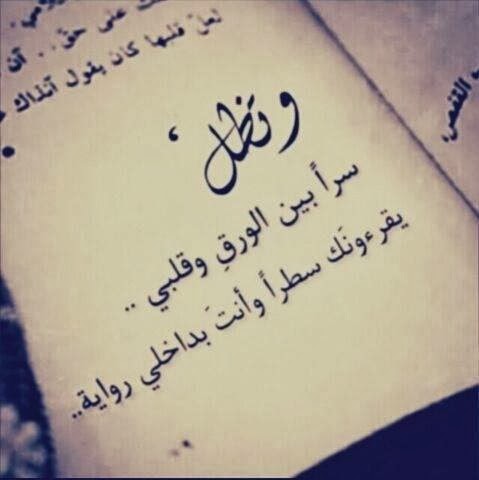 على حق .. آن
لعلّ قلبها كان يقول آنذاك
القفص،
وتظل ،
سراً بين الورقِ وقلبي ..
يقرءونَك سطراً وأنتَ بداخلي رواية..